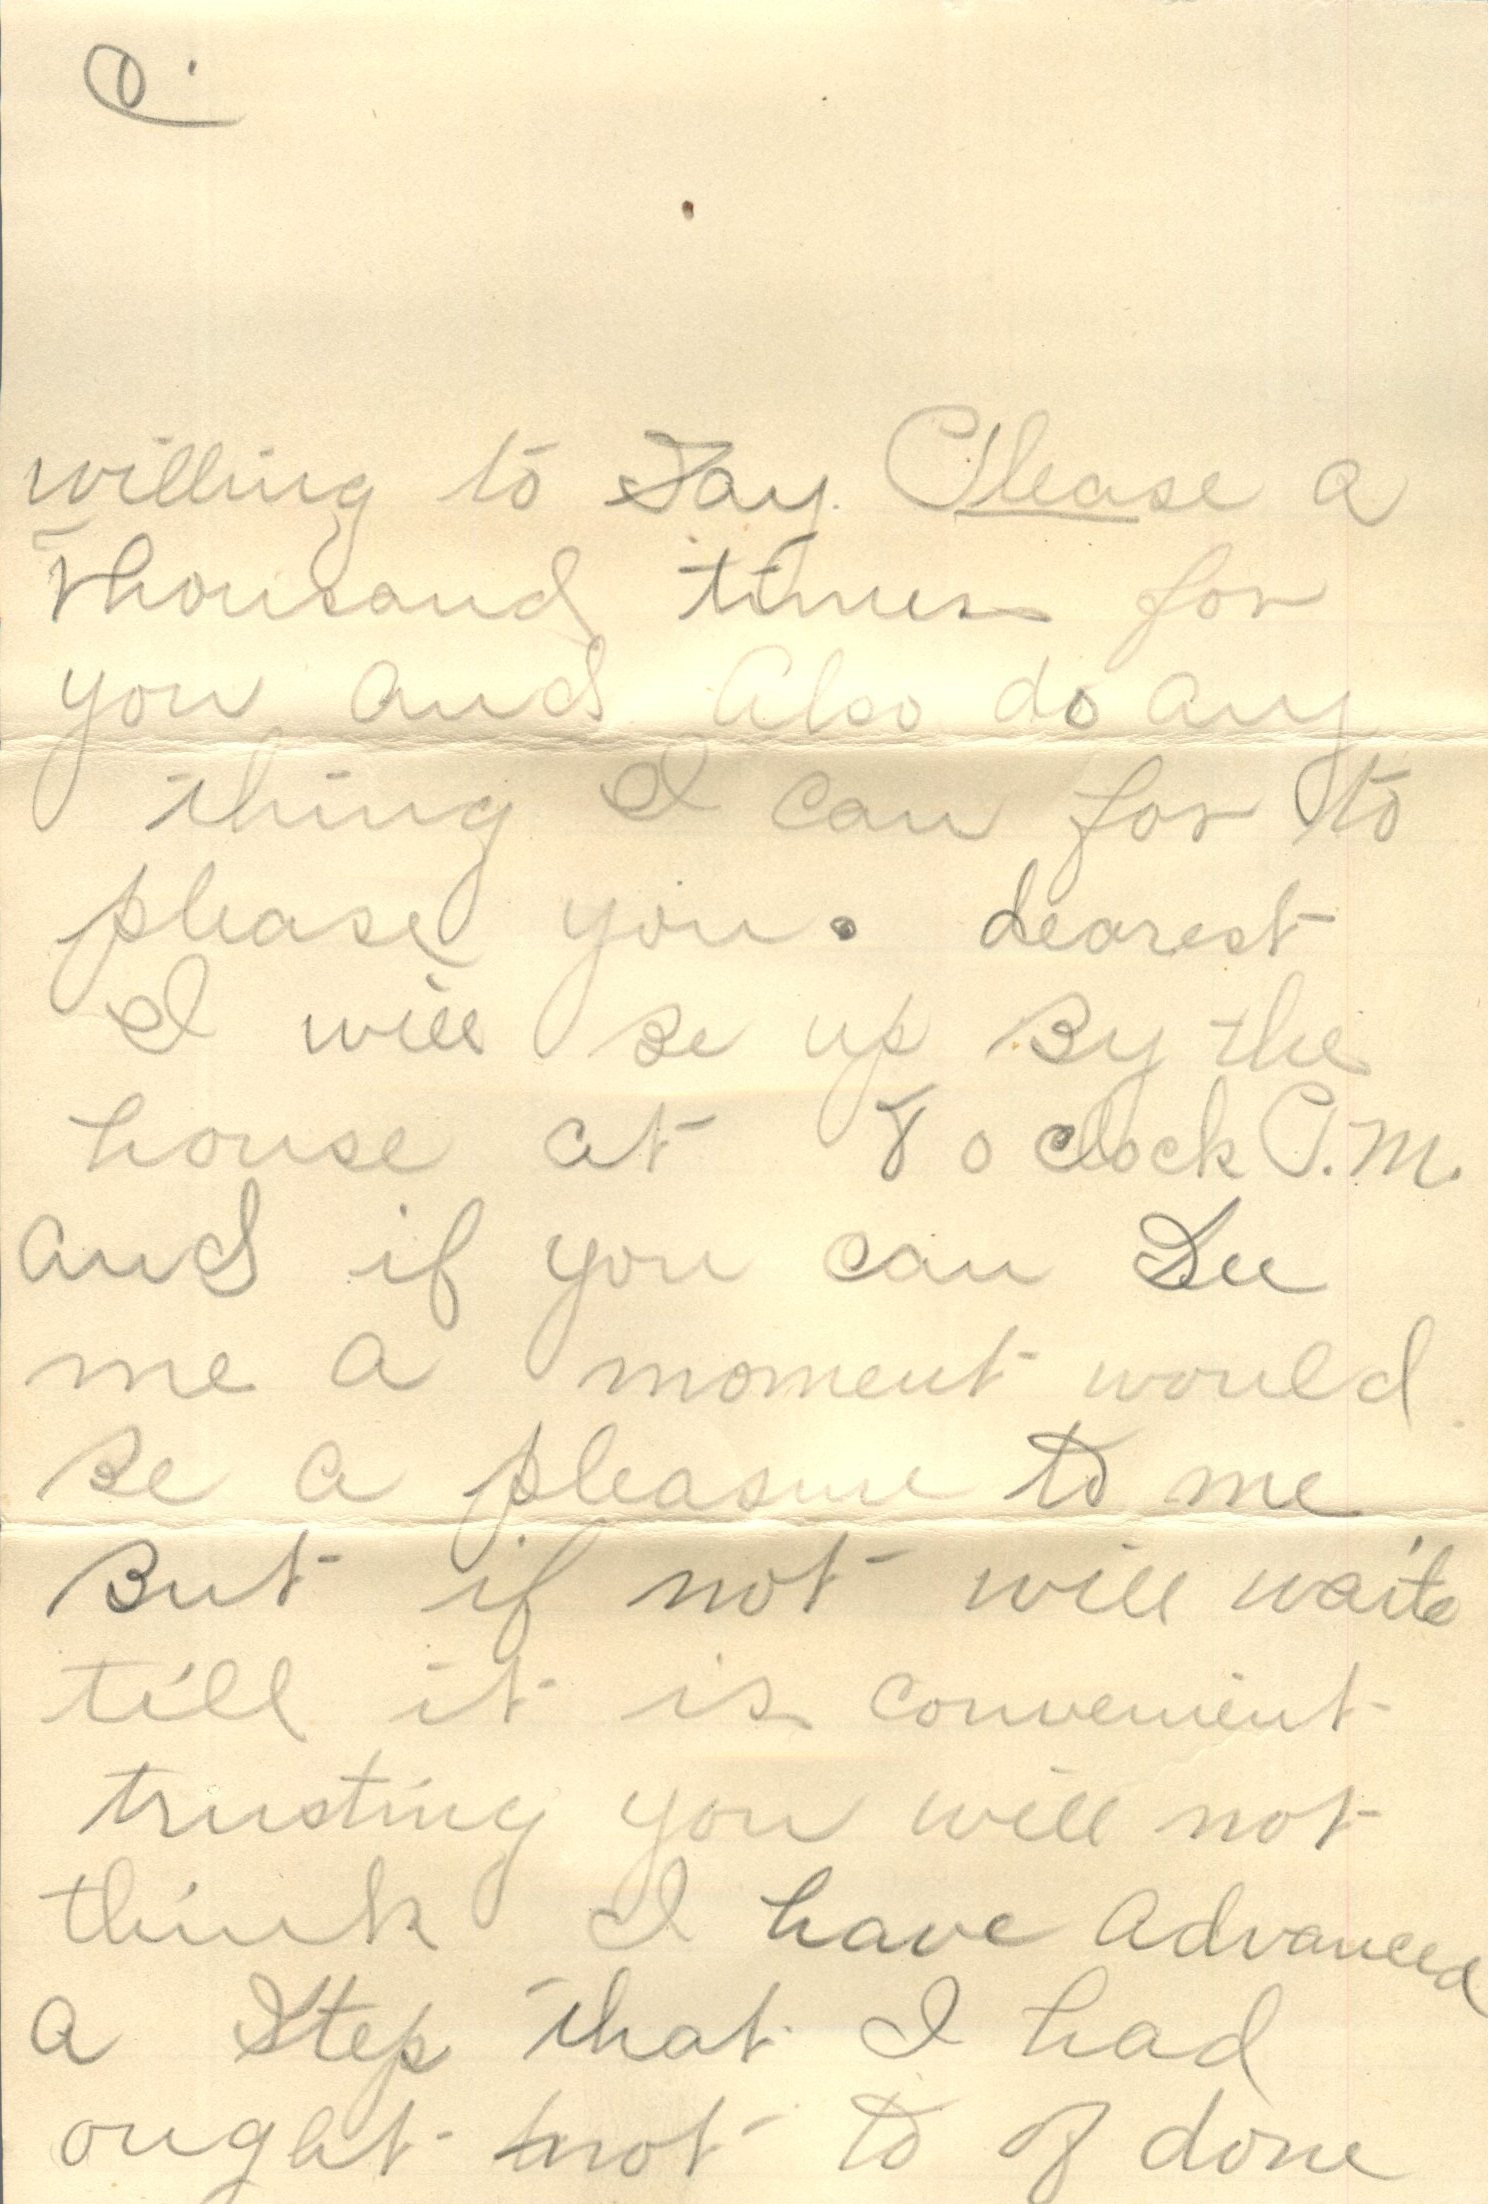 willing to Say. Please a
thousand times for
you and Also do any
thing I can for to
please you. dearest
I will Be up By the
house at 8 o clock P.M.
and if you can See
me a moment would
Be a pleasure to me
But if not will waite
till it is convenient
trusting you will not
think I have advanced
a Step that I had
ought not to of done